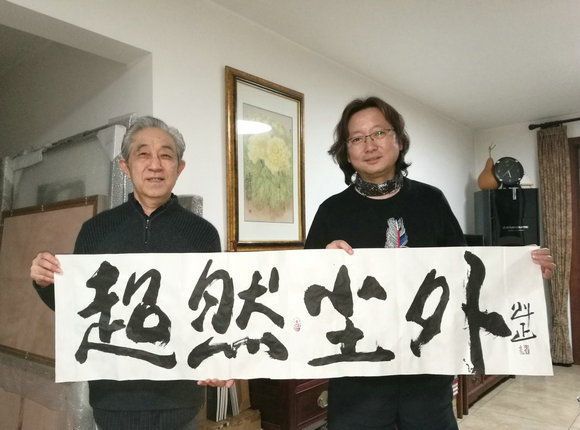 超然尘外